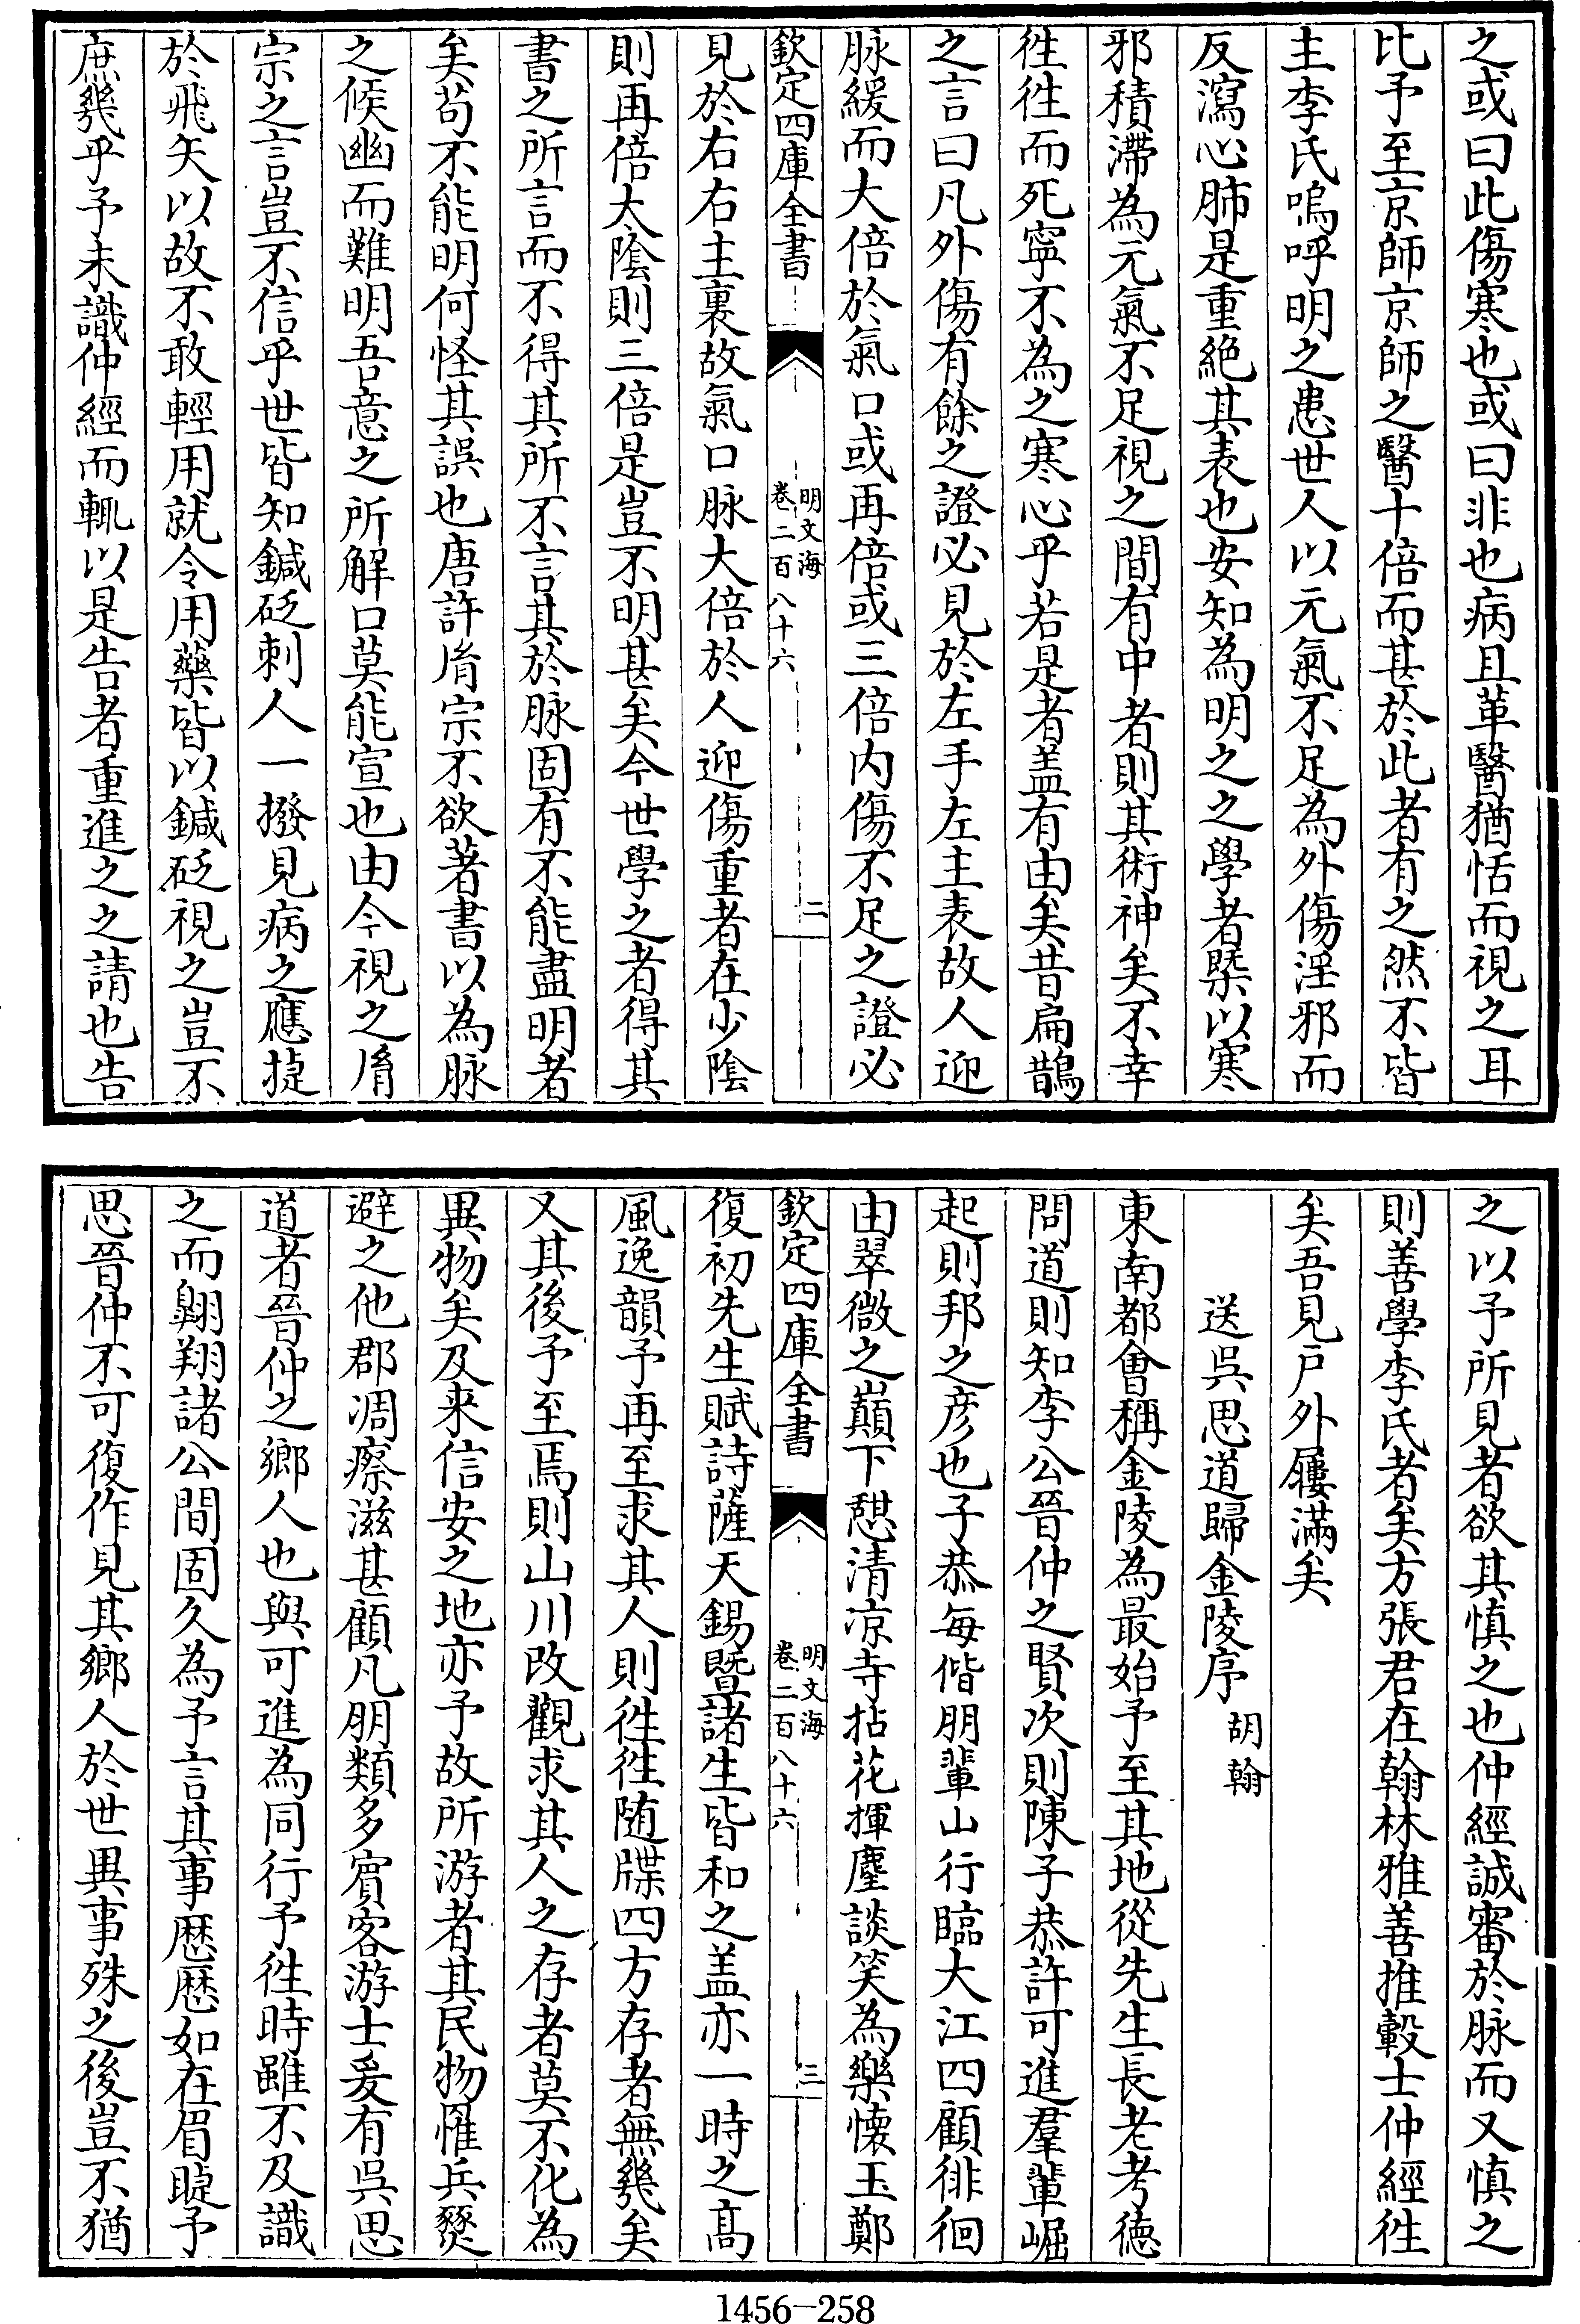 之或曰此傷寒也或曰非也病且革醫猶恬而視之耳
比予至京師京師之醫十倍而甚於此者有之然不皆
主李氏嗚呼明之患世人以元氣不足為外傷淫邪而
反瀉心肺是重絶其表也安知為明之之學者槩以寒
邪積滯為元氣不足視之間有中者則其術神矣不幸
徃徃而死寧不為之寒心乎若是者盖有由矣昔扁鵲
之言曰凡外傷有餘之證必見於左手左主表故人迎
脉緩而大倍於氣口或再倍或三倍内傷不足之證必
欽定四庫全書
明文海
卷二百八十六
二
見於右右主裏故氣口脉大倍於人迎傷重者在少陰
則再倍太陰則三倍是豈不明甚矣今世學之者得其
書之所言而不得其所不言其於脉固有不能盡明者
矣苟不能明何怪其誤也唐許胤宗不欲著書以為脉
之候幽而難明吾意之所解口莫能宣也由今視之胤
宗之言豈不信乎世皆知鍼砭刺人一撥見病之應捷
於飛矢以故不敢輕用就令用藥皆以鍼砭視之豈不
庶幾乎予未識仲經而輒以是告者重進之之請也告
之以予所見者欲其慎之也仲經誠審於脉而又慎之
則善學李氏者矣方張君在翰林雅善推轂士仲經徃
矣吾見戶外屨滿矣
送吳思道歸金陵序 胡翰
東南都會稱金陵為最始予至其地從先生長老考德
問道則知李公晉仲之賢次則陳子恭許可進羣輩崛
起則邦之彦也子恭每偕朋輩山行臨大江四顧徘徊
由翠微之巔下憇清凉寺拈花揮麈談笑為樂懐玉鄭
欽定四庫全書
明文海
卷二百八十六
三
復初先生賦詩薩天錫暨諸生皆和之盖亦一時之髙
風逸韻予再至求其人則徃徃随牒四方存者無幾矣
又其後予至焉則山川改觀求其人之存者莫不化為
異物矣及来信安之地亦予故所游者其民物罹兵燹
避之他郡凋瘵滋甚顧凡朋類多賔客游士爰有吳思
道者晉仲之鄉人也與可進為同行予徃時雖不及識
之而翺翔諸公間固久為予言其事厯厯如在眉睫予
思晉仲不可復作見其鄉人於世異事殊之後豈不猶
1456-258